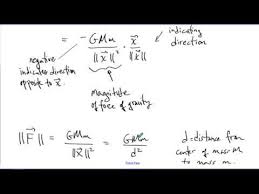 indicating
direction
= - GMm / ||x⃗||² · x⃗ / ||x⃗||
negative
indicates direction
opposite to x⃗.
magnitude
of force of gravity
||F⃗|| = GMm / ||x⃗||² = GMm / d²
d = distance from
center of mass M
to mass m.